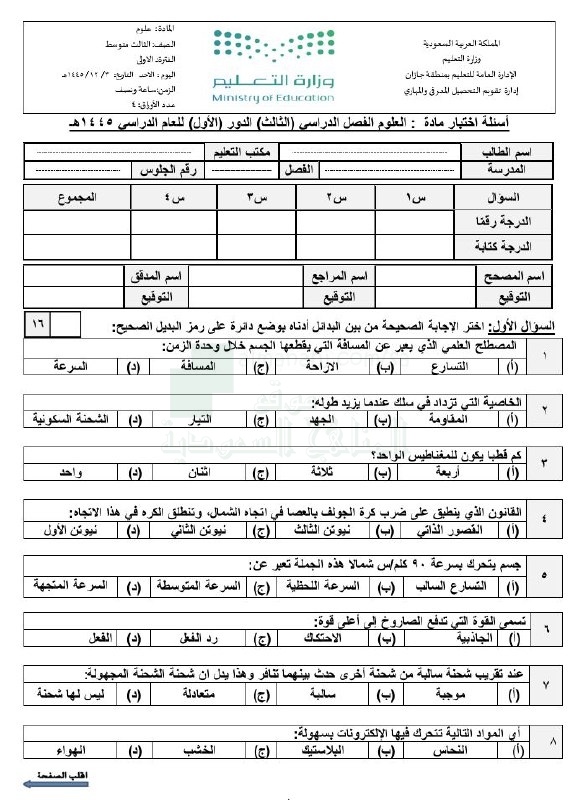 المملكة العربية السعودية
وزارة التعليم
الإدارة العامة للتعليم بمنطقة جازان
إدارة تقويم التحصيل المعرفي والمهاري
وزارة التعليم
Ministry of Education
المادة: علوم
الصف: الثالث متوسط
الفترة: الاولى
اليوم : الاحد التاريخ: ٣ /١٢/ ١٤٤٥هـ
الزمن: ساعة ونصف
عدد الأوراق: ٤
أسئلة اختبار مادة : العلوم الفصل الدراسي (الثالث) الدور (الأول) للعام الدراسي ١٤٤٥هـ
اسم الطالب مكتب التعليم
المدرسة الفصل رقم الجلوس
السؤال س١ س٢ س٣ س٤ المجموع
الدرجة رقمًا
الدرجة كتابة
اسم المصحح اسم المراجع اسم المدقق
التوقيع التوقيع التوقيع
السؤال الأول: اختر الإجابة الصحيحة من بين البدائل أدناه بوضع دائرة على رمز البديل الصحيح: ١٦
١ المصطلح العلمي الذي يعبر عن المسافة التي يقطعها الجسم خلال وحدة الزمن:
(أ) التسارع (ب) الازاحة (ج) المسافة (د) السرعة
٢ الخاصية التي تزداد في سلك عندما يزيد طوله:
(أ) المقاومة (ب) الجهد (ج) التيار (د) الشحنة السكونية
٣ كم قطبا يكون للمغناطيس الواحد؟
(أ) أربعة (ب) ثلاثة (ج) اثنان (د) واحد
٤ القانون الذي ينطبق على ضرب كرة الجولف بالعصا في اتجاه الشمال، وتنطلق الكره في هذا الاتجاه:
(أ) القصور الذاتي (ب) نيوتن الثالث (ج) نيوتن الثاني (د) نيوتن الأول
٥ جسم يتحرك بسرعة ٩٠ كلم/س شمالا هذه الجملة تعبر عن:
(أ) التسارع السالب (ب) السرعة اللحظية (ج) السرعة المتوسطة (د) السرعة المتجهة
٦ تسمى القوة التي تدفع الصاروخ إلى أعلى قوة:
(أ) الجاذبية (ب) الاحتكاك (ج) رد الفعل (د) الفعل
٧ عند تقريب شحنة سالبة من شحنة أخرى حدث بينهما تنافر وهذا يدل ان شحنة الشحنة المجهولة:
(أ) موجبة (ب) سالبة (ج) متعادلة (د) ليس لها شحنة
٨ أي المواد التالية تتحرك فيها الإلكترونات بسهولة:
(أ) النحاس (ب) البلاستيك (ج) الخشب (د) الهواء
اقلب الصفحة